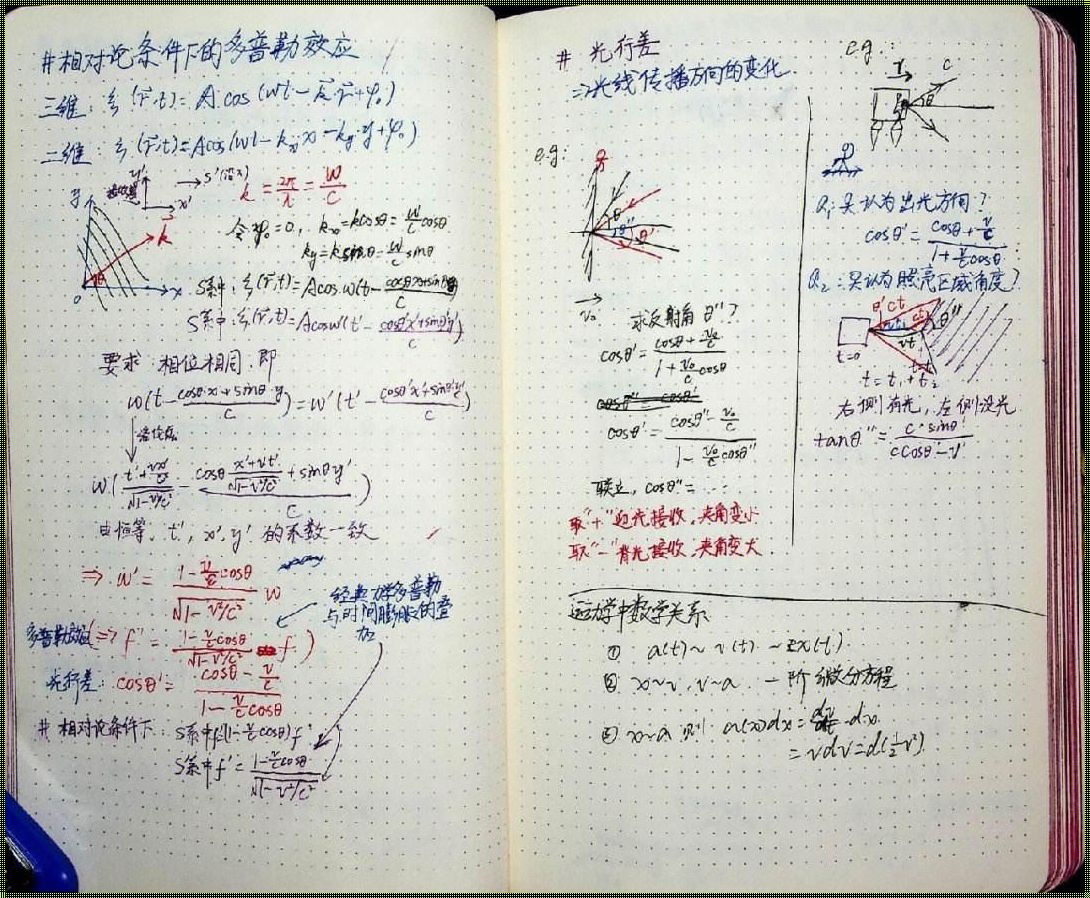 # 相对论条件下的多普勒效应
三维: ξ(r⃗,t)=A·cos(ωt-k⃗·r⃗+φ₀)
二维: ξ(r⃗,t)=Acos(ωt-kₓ·x-k_y·y+φ₀)
y
y'
x'
→S'(沿x)
k
θ
o
x
k=2π/λ=ω/c
令φ₀=0, kₓ=kcosθ=ω/c cosθ
k_y=ksinθ=ω/c sinθ
S系中:ξ(r⃗,t)=Acosω(t-(cosθx+sinθy)/c)
S系中:ξ(r⃗,t)=Acosω'(t'-(cosθ'x'+sinθ'y')/c)
要求:相位相同.即
ω(t-(cosθ·x+sinθ·y)/c)=ω'(t'-(cosθ'x'+sinθ'y')/c)
ω((t'+vx'/c²)/√(1-v²/c²)-(cosθ (x'+vt')/√(1-v²/c²)+sinθy')/c)
由恒等, t', x', y' 的系数一致
⇒ ω'=(1-v/c cosθ)/√(1-v²/c²) ω
多普勒效应(⇒ f'=(1-v/c cosθ)/√(1-v²/c²) f)
经典力学多普勒
与时间膨胀的叠
加
光行差: cosθ'=(cosθ-v/c)/(1-v/c cosθ)
# 相对论条件下: S系中f=(1-v/c cosθ)f
S系中f'=(1-v/c cosθ)/√(1-v²/c²)
# 光行差
⇒光线传播方向的变化
e.g:
θ
θ''
θ'
→v₀
求反射角θ''?
cosθ'=(cosθ+v₀/c)/(1+v₀/c cosθ)
cosθ'=(cosθ''-v₀/c)/(1-v₀/c cosθ'')
联立, cosθ''=...
取"+"迎光接收,夹角变小
取"-"背光接收,夹角变大
e.g:
v
c
θ
Q₁:只认为出光方向?
cosθ'=(cosθ+v/c)/(1+v/c cosθ)
Q₂:只认为照亮区域角度?
θ' ct
vt
θ''
t=0
t=t₁+t₂
右侧有光, 左侧没光
tanθ''=c·sinθ'/(ccosθ'-v)
运动学中数学关系
① a(t)~v(t)~x(t)
② x~v, v~a. 一阶微分方程
③ x~a 则 a(x)dx=dv/dt·dx
=vdv=d(½v²)